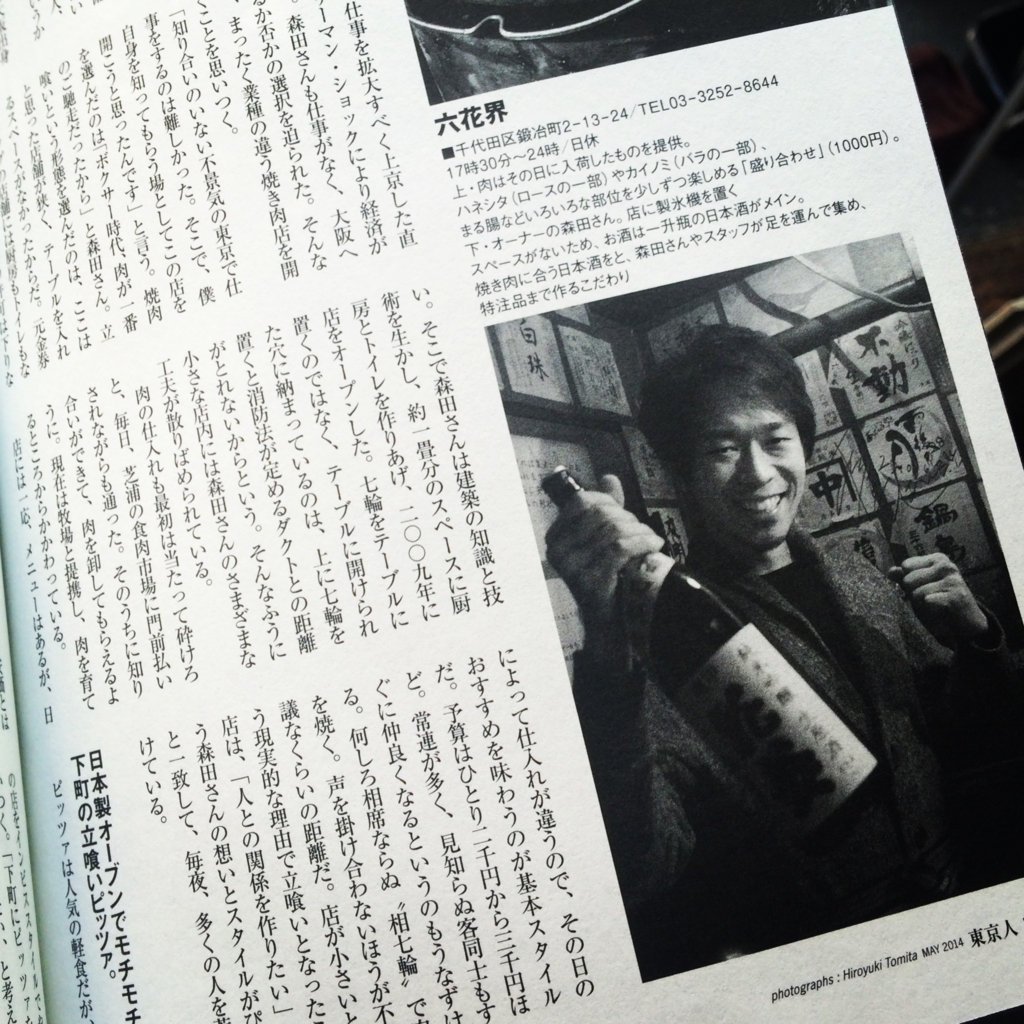 六花界
■千代田区鍛冶町2-13-24/TEL03-3252-8644
17時30分〜24時/日休
上・肉はその日に入荷したものを提供。
ハネシタ(ロースの一部)やカイノミ(バラの一部)、
まる腸などいろいろな部位を少しずつ楽しめる「盛り合わせ」(1000円)。
下・オーナーの森田さん。店に製氷機を置く
スペースがないため、お酒は一升瓶の日本酒がメイン。
焼き肉に合う日本酒をと、森田さんやスタッフが足を運んで集め、
特注品まで作るこだわり
仕事を拡大すべく上京した直
ーマン・ショックにより経済が
森田さんも仕事がなく、大阪へ
るか否かの選択を迫られた。そんな
まったく業種の違う焼き肉店を開
くことを思いつく。
「知り合いのいない不景気の東京で仕
事をするのは難しかった。そこで、僕
自身を知ってもらう場としてこの店を
開こうと思ったんです」と言う。焼肉
を選んだのは「ボクサー時代、肉が一番
のご馳走だったから」と森田さん。立
喰いという形態を選んだのは、ここは
と思った店舗が狭く、テーブルを入れ
るスペースがなかったからだ。元金券
い。そこで森田さんは建築の知識と技
術を生かし、約一畳分のスペースに厨
房とトイレを作りあげ、二〇〇九年に
店をオープンした。七輪をテーブルに
置くのではなく、テーブルに開けられ
た穴に納まっているのは、上に七輪を
置くと消防法が定めるダクトとの距離
がとれないからという。そんなふうに
小さな店内には森田さんのさまざまな
工夫が散りばめられている。
肉の仕入れも最初は当たって砕けろ
と、毎日、芝浦の食肉市場に門前払い
されながらも通った。そのうちに知り
合いができて、肉を卸してもらえるよ
うに。現在は牧場と提携し、肉を育て
るところからかかわっている。
店には一応、メニューはあるが、日
によって仕入れが違うので、その日の
おすすめを味わうのが基本スタイル
だ。予算はひとり二千円から三千円ほ
ど。常連が多く、見知らぬ客同士もす
ぐに仲良くなるというのもうなずけ
る。何しろ相席ならぬ〝相七輪〟で
を焼く。声を掛け合わないほうが不
議なくらいの距離だ。店が小さいと
う現実的な理由で立喰いとなった
店は、「人との関係を作りたい」
う森田さんの想いとスタイルがぴ
と一致して、毎夜、多くの人を
けている。
日本製オーブンでモチモチ
下町の立喰いピッツァ。
ピッツァは人気の軽食だが、
白珠
不動
中
photographs : Hiroyuki Tomita MAY 2014 東京人